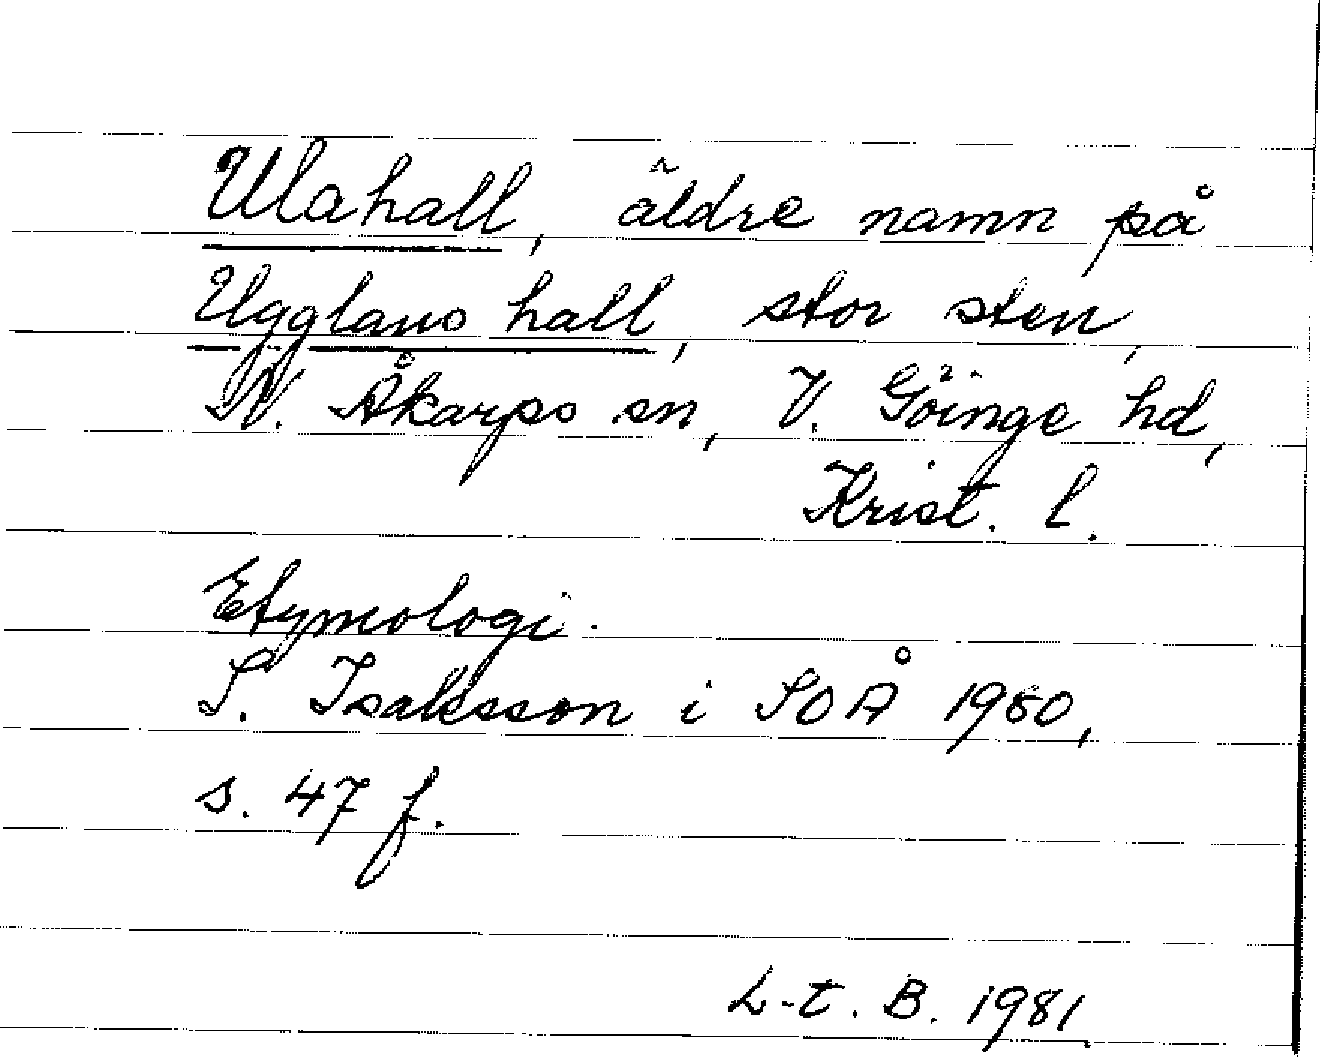 Ulahall, äldre namn på
Ugglans hall, stor sten,
N. Åkarps sn, V. Göinge hd,
Krist. l.
Etymologi.
S. Isaksson i SOÅ 1980,
s. 47 f.
L-t. B. 1981